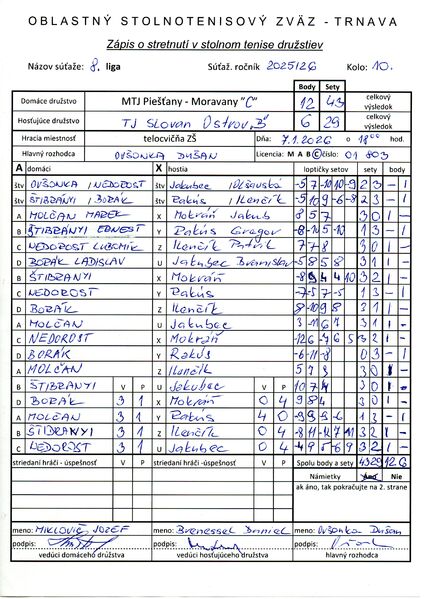 OBLASTNÝ STOLNOTENISOVÝ ZVÄZ - TRNAVA
Zápis o stretnutí v stolnom tenise družstiev
Názov súťaže: 8. liga Súťaž. ročník 2025/26 Kolo: 10.
Body Sety
Domáce družstvo MTJ Piešťany - Moravany "C" 12 43 celkový výsledok
Hosťujúce družstvo TJ Slovan Ostrov "B" 6 29 celkový výsledok
Hracia miestnosť telocvičňa ZŠ Dňa: 7.1.2026 o 18 00 hod.
Hlavný rozhodca OVŠONKA DUŠAN Licencia: M A B C číslo: 01 803
A domáci X hostia loptičky setov sety body
štv OVŠONKA / NEDOROST štv Jakubec -5 7 -10 10 -9 2 3 - 1
štv ŠTIBRÁNYI / BORÁK štv Rakús / Ilenčík -5 10 9 -6 -8 2 3 - 1
A MOLČAN MAREK X Mokráň Jakub 8 5 7 3 0 1 -
B ŠTIBRÁNYI ERNEST Y Rakús Gregor -8 -10 5 -10 1 3 - 1
C NEDOROST ĽUBOMÍR Z Ilenčík Patrik 7 7 8 3 0 1 -
D BORÁK LADISLAV U Jakubec Branislav -5 8 5 8 3 1 1 -
B ŠTIBRÁNYI X Mokráň -8 9 4 4 10 3 2 1 -
C NEDOROST Y Rakús -7 -5 7 -5 1 3 - 1
D BORÁK Z Ilenčík 8 -10 9 8 3 1 1 -
A MOLČAN U Jakubec 3 -11 6 7 3 1 1 -
C NEDOROST X Mokráň -12 6 -4 6 5 3 2 1 -
D BORÁK Y Rakús -6 -11 -8 0 3 - 1
A MOLČAN Z Ilenčík 5 7 3 3 0 1 -
B ŠTIBRÁNYI V P U Jakubec V P 10 7 4 3 0 1 -
D BORÁK 3 1 X Mokráň 0 4 9 8 4 3 0 1 -
A MOLČAN 3 1 Y Rakús 4 0 -9 9 -9 -6 1 3 - 1
B ŠTIBRÁNYI 3 1 Z Ilenčík 0 4 -8 11 -12 7 11 3 2 1 -
C NEDOROST 3 1 U Jakubec 0 4 -4 9 -5 6 9 3 2 1 -
striedaní hráči - úspešnosť V P striedaní hráči - úspešnosť V P Spolu body a sety 43 29 12 6
Námietky Nie
ak áno, tak pokračujte na 2. strane
meno: MIKLOVIČ JOZEF meno: Brenessel Daniel meno: Ovšonka Dušan
podpis: podpis: podpis:
vedúci domáceho družstva vedúci hosťujúceho družstva hlavný rozhodca